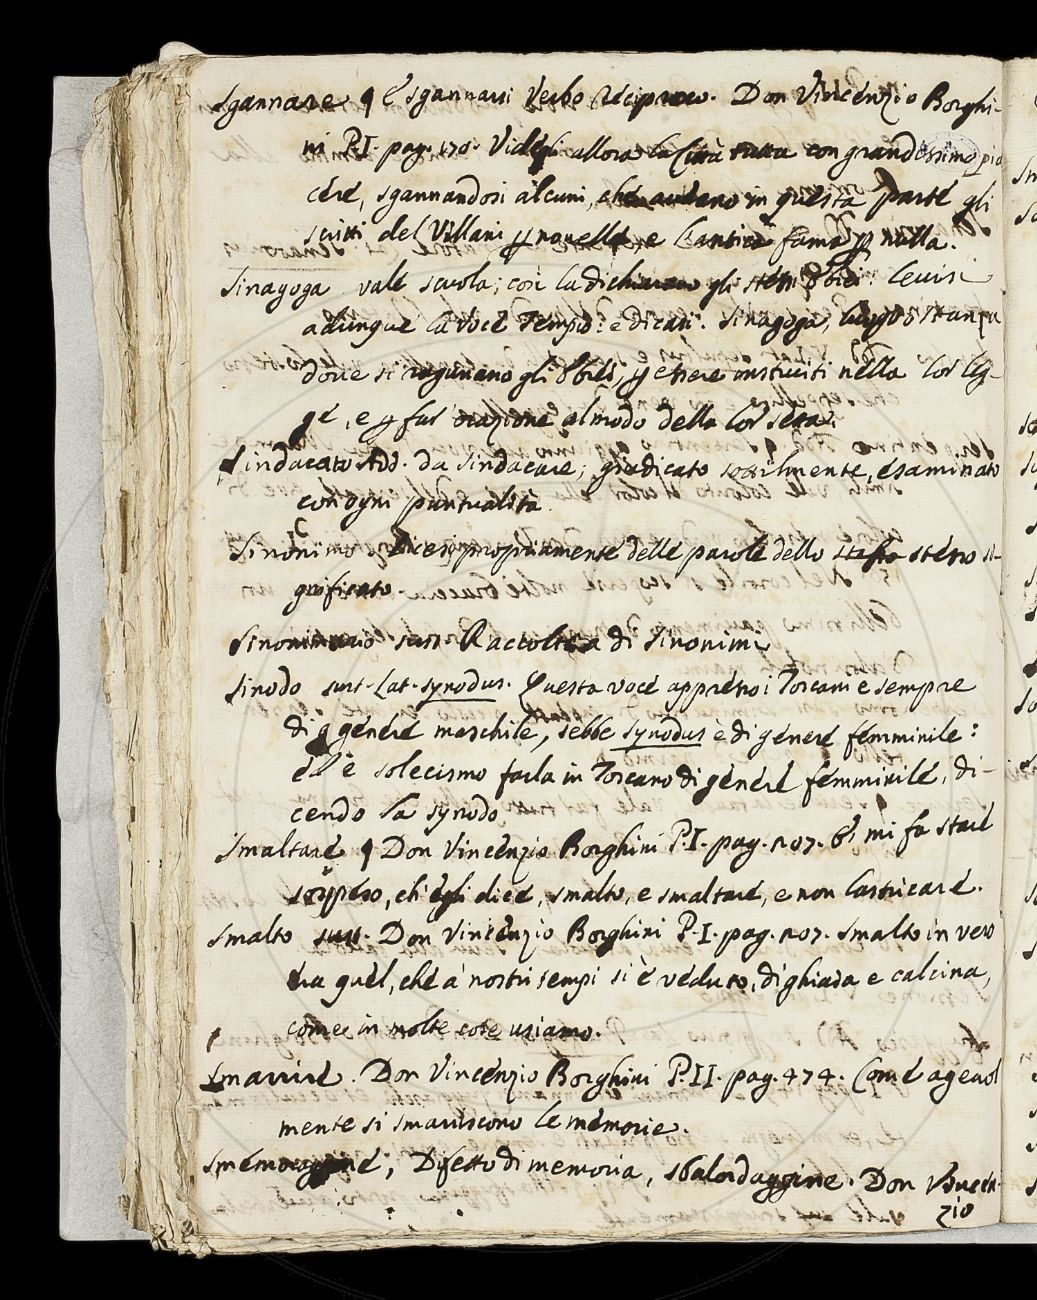 Sgannare ¶ e sgannarsi Verbo reciproco. Don Vincenzio Borghi-
ni P.I. pag. 170. Videsi allora la Città tutta con grandissimo pia
cere, sgannandosi alcuni, che aveano in questa parte gli
scritti del Villani novelle e l'antica fama nulla.
Sinagoga vale scuola; così la dichiarano gli stessi Ebrei: levisi
adunque la voce Tempio: e dicasi. Sinagoga, luogo o stanza
dove si ragunano gli Ebrei, essere instruiti nella lor leg-
ge, e far orazione al modo della lor setta.
Sindacato Add. da Sindacare; giudicato sottilmente, esaminato
con ogni puntualità.
Sinonimo Dicesi propriamente delle parole dello stesso si-
gnificato.
Sinonimario sust. Raccolta di Sinonimi
Sinodo sust. Lat. synodus. Questa voce appresso i Toscani è sempre
di genere maschile, sebbe synodus è di genere femminile:
ed è solecismo farla in Toscano di genere femminile, di-
cendo la synodo
Smaltare ¶ Don Vincenzio Borghini P.I. pag. 207. Et mi fa stare
sospeso, ch'egli dice, smalto, e smaltare, e non lastricare.
Smalto sust. Don Vincenzio Borghini P.I. pag. 207. smalto in vero
era quel, che a' nostri tempi si è veduto, di ghiaia e calcina,
come in molte cose usiamo.
Smarrire. Don Vincenzio Borghini P.II. pag. 474. Come agevol
mente si smarriscono le memorie.
Smemoraggine, Difetto di memoria, sbalordaggine. Don
zio